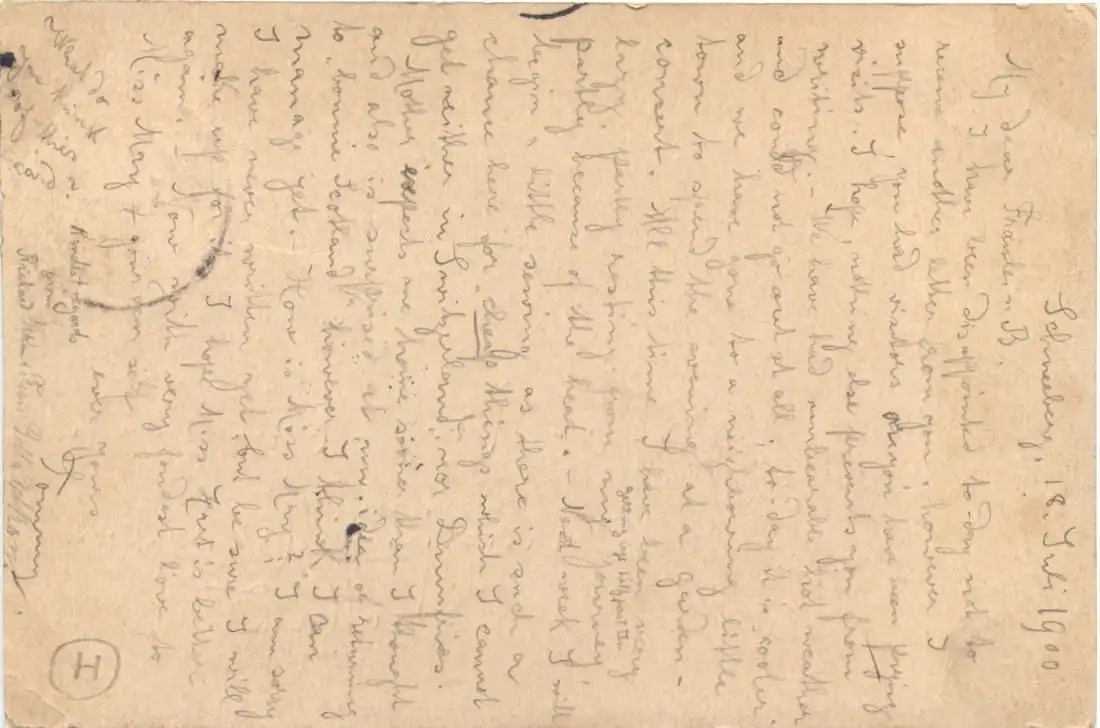 Schneeberg, 18. Juli 1900
My dear Fräulein B.
I have been disappointed to-day not to
receive another letter from you, however I
suppose you had visitors or you have been paying
visits. I hope, nothing else prevents you from
writing. – We have had unbearable hot weather
and could not go out at all; to-day it is cooler
and we have gone to a neighbouring little
town to spend the evening at a garden-
concert. All this time I have been very
lazy, partly resting from my journey
getting up
partly because of the heat. – Next week I will
begin a little sewing as there is such a
chance here for cheap things which I cannot
get neither in Switzerland, nor Dumfries.
Mother expects me home sooner than I thought
and also is surprised at my idea of returning
to bonnie Scotland; however I think I can
manage yet. – How is Miss May? I am sorry
I have never written yet, but be sure I will
make up for it. I hope Miss Hart is better
again. Now with very fondest love to
Miss May + your own self
ever yours
Tommy
Kindest regards
from
I